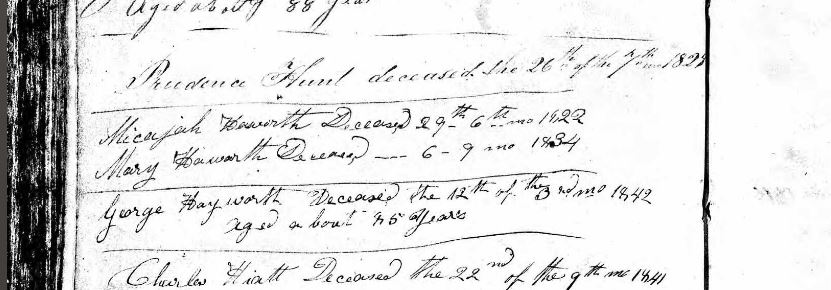 Aged about 88 year
Prudence Hunt deceased the 26th of the 7th mo
Micajah Haworth Deceased 29th 6th mo 1822
Mary Haworth Deceased — 6 - 9 mo 1834
George Hayworth Deceased the 12th of the 3rd mo 1842
aged about Years
Charles Hiatt Deceased the 22nd of the 9th mo 1841